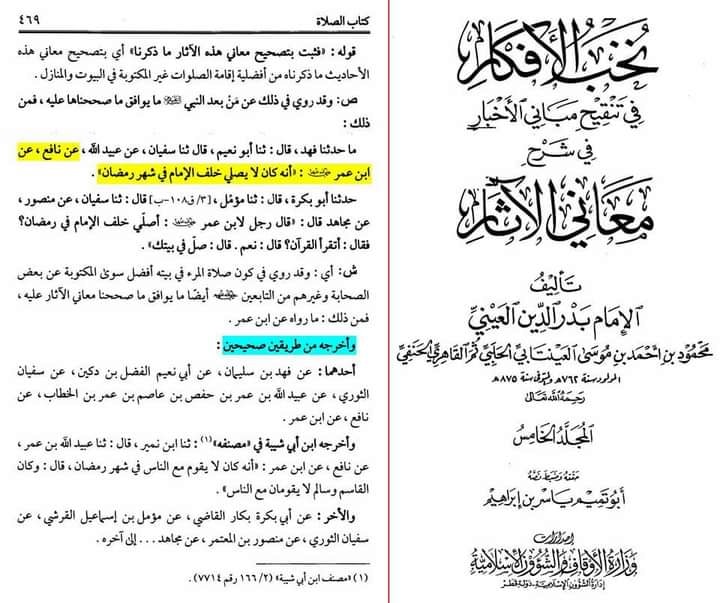 كتاب الصلاة
٤٦٩
قوله: «فثبت بتصحيح معاني هذه الآثار ما ذكرنا» أي بتصحيح معاني هذه
الأحاديث ما ذكرناه من أفضلية إقامة الصلوات غير المكتوبة في البيوت والمنازل.
ص: وقد روي في ذلك عن مَنْ بعد النبي ﷺ ما يوافق ما صححناها عليه، فمن
ذلك:
ما حدثنا فهد، قال: ثنا أبو نعيم، قال ثنا سفيان، عن عبيد الله، عن نافع، عن
ابن عمر: «أنه كان لا يصلي خلف الإمام في شهر رمضان».
حدثنا أبو بكرة، قال: ثنا مؤمّل، [٣/ق١٠٨-ب] قال: ثنا سفيان، عن منصور،
عن مجاهد قال: «قال رجل لابن عمر: أصلّي خلف الإمام في رمضان؟
فقال: أتقرأ القرآن؟ قال: نعم. قال: صلّ في بيتك».
ش: أي: وقد روي في كون صلاة المرء في بيته أفضل سوى المكتوبة عن بعض
الصحابة وغيرهم من التابعين أيضًا ما يوافق ما صححنا معاني الآثار عليه،
فمن ذلك: ما رواه عن ابن عمر.
وأخرجه من طريقين صحيحين:
أحدهما: عن فهد بن سليمان، عن أبي نعيم الفضل بن دكين، عن سفيان
الثوري، عن عبيد الله بن عمر بن حفص بن عاصم بن عمر بن الخطاب، عن
نافع، عن ابن عمر.
وأخرجه ابن أبي شيبة في «مصنفه»(١): ثنا ابن نمير، قال: ثنا عبيد الله بن عمر،
عن نافع، عن ابن عمر: «أنه كان لا يقوم مع الناس في شهر رمضان، قال: وكان
القاسم وسالم لا يقومان مع الناس».
والآخر: عن أبي بكرة بكار القاضي، عن مؤمل بن إسماعيل القرشي، عن
سفيان الثوري، عن منصور بن المعتمر، عن مجاهد... إلى آخره.
(١) «مصنف ابن أبي شيبة» (٢/ ١٦٦ رقم ٧٧١٤).
نخب الأفكار
في تنقيح مباني الأخبار
في شرح
معاني الآثار
تأليف
الإمام بدر الدين العيني
محمود بن أحمد بن موسى العينتابي الحلبي ثم القاهري الحنفي
المولود سنة ٧٦٢هـ والمتوفى سنة ٨٧٥هـ
رحمه الله تعالى
المجلد الخامس
حققه وضبط نصه
أبو تميم ياسر بن إبراهيم
إصدارات
وزارة الأوقاف والشؤون الإسلامية
إدارة الشؤون الإسلامية - دولة قطر